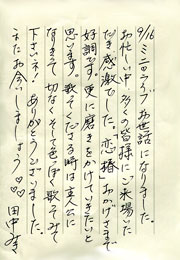 9/16 ミニライブお世話になりました。
お忙い中、多くの皆様にご来場いた
だき感激でした。「恋椿」おかげさまで
好調です。更に磨きをかけていきたいと
思います。歌ってくださる時は主人公に
なりきって切なくそして色っぽく歌ってみて
下さいネ！ありがとうございました。
またお会いしましょう♡♡